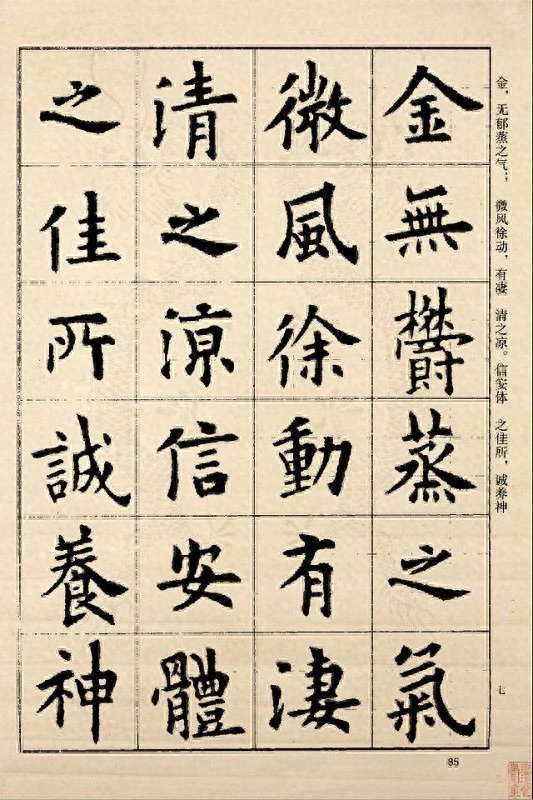 金無鬱蒸之氣
微風徐動有淒
清之涼信安體
之佳所誠養神
金，无郁蒸之气； 微风徐动，有凄 清之凉。信安体 之佳所，诚养神
七
85